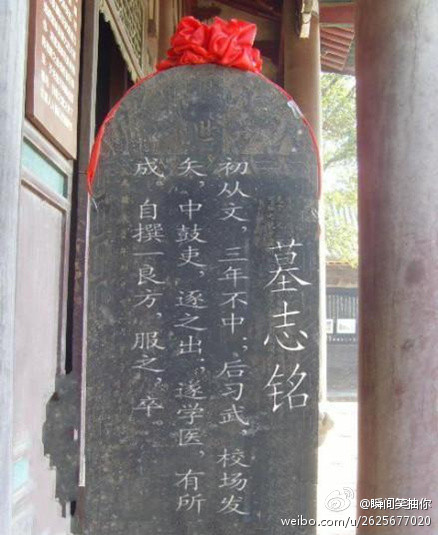 墓志铭
初从文，三年不中；后习武，校场发
矢，中鼓吏，逐之出；遂学医，有所
成。自撰一良方，服之，卒。
@瞬间笑抽你
weibo.com/u/2625677020